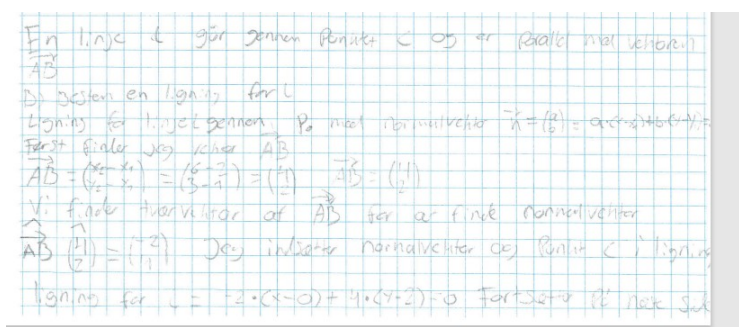 En linje l går gennem Punktet C og er parallel med vektoren
AB
D) Bestem en ligning for L
Ligning for linje L gennem P₀ med normalvektor n = (a b) = a·(x-x)+b(y-y)=
Først finder jeg AB
AB = (x₂-x₁ y₂-y₁) = (6-2 3-1) = (4 2) AB = (4 2)
Vi finder tværvektor af AB for at finde normalvektor
AB (4 2) = (-2 4) Jeg indsætter normalvektor og Punkt C i ligning
ligning for L = -2·(x-0)+4·(y-2)=0 Fortsætter På næste